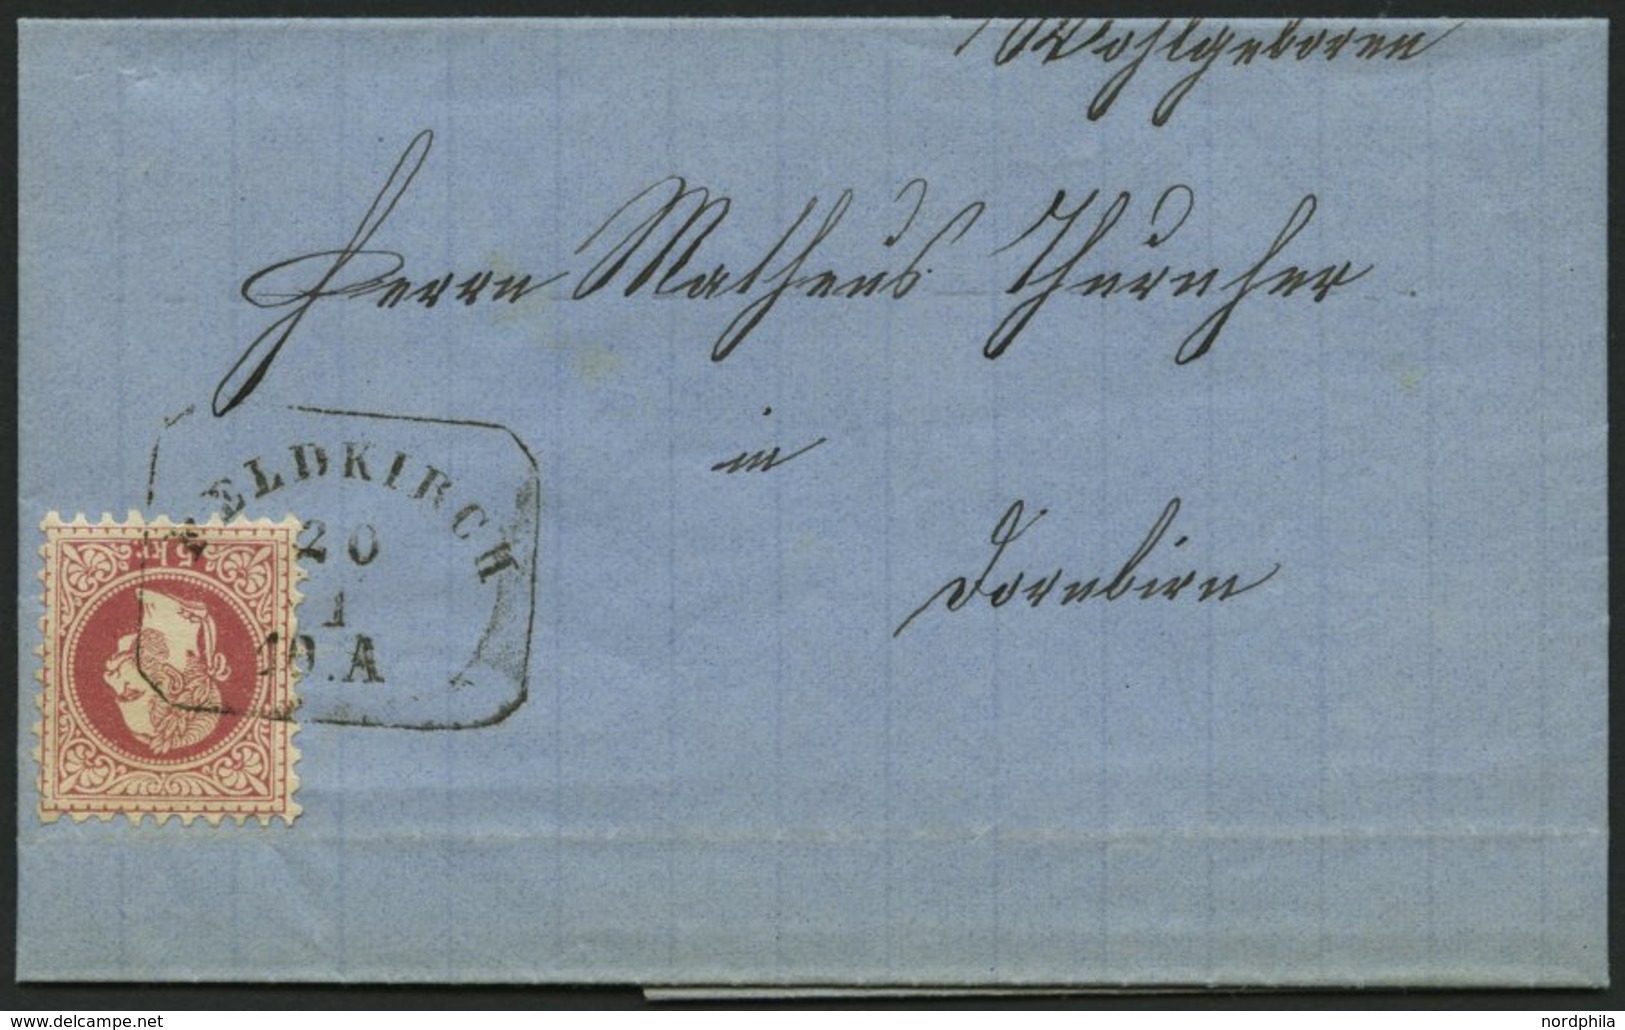 Wohlgeboren
Herrn Matheus Thurnher
in
Dornbirn
FELDKIRCH
20
1
10.A
5 kr.
delcampe.net
nordphila